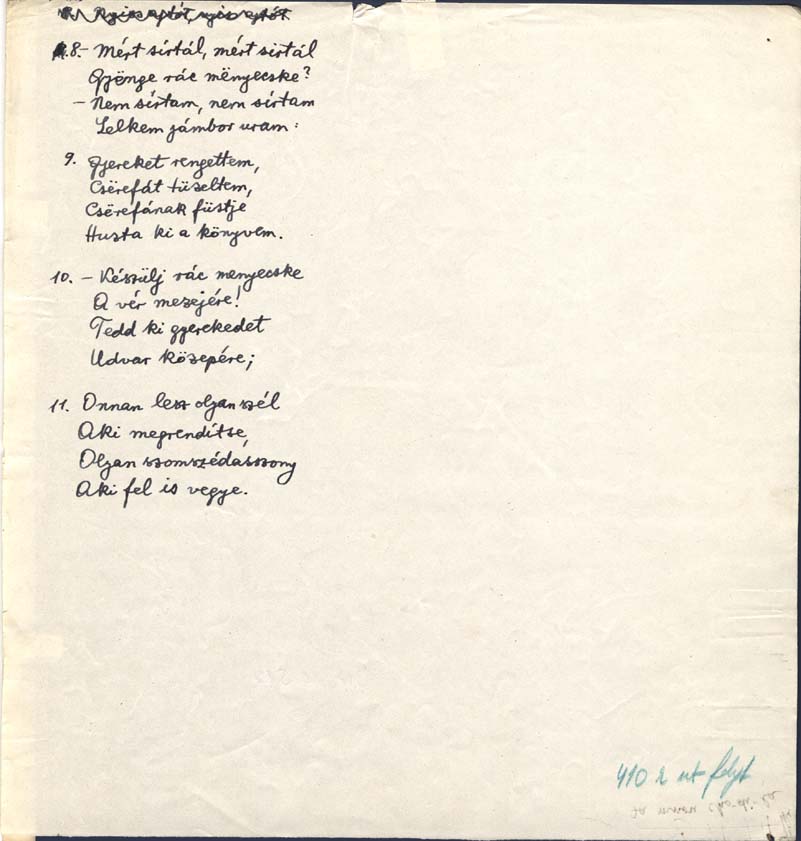 8. Nyiss ajtót, nyiss ajtót
8. – Mért sirtál, mért sirtál
Gyënge rác mënyecske?
– Nem sírtam, nem sírtam
Lelkem jámbor uram:
9. Gyereket rengettem,
Csërefát tüzeltem,
Csërefának füstje
Huzta ki a könyvem.
10. – Készülj rác menyecske
A vér mezejére!
Tedd ki gyerekedet
Udvar közepére;
11. Onnan lesz olyan szél
Aki megrendítse,
Olyan szomszédasszony
Aki fel is vegye.
410 r